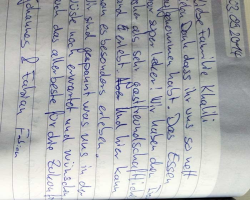 02.09.2017
Liebe Familie Khalili
Dank dass ihr uns so nett
aufgenommen habt. Das Essen
war super lecker! Wir haben den
als sehr gastfreundschaftlich
erlebt und hier kann
man es besonders erleben.
Wir sind gespannt was uns in der
noch erwartet und wünschen
euch das allerbeste für die Zukunft
Johannes & Fabian